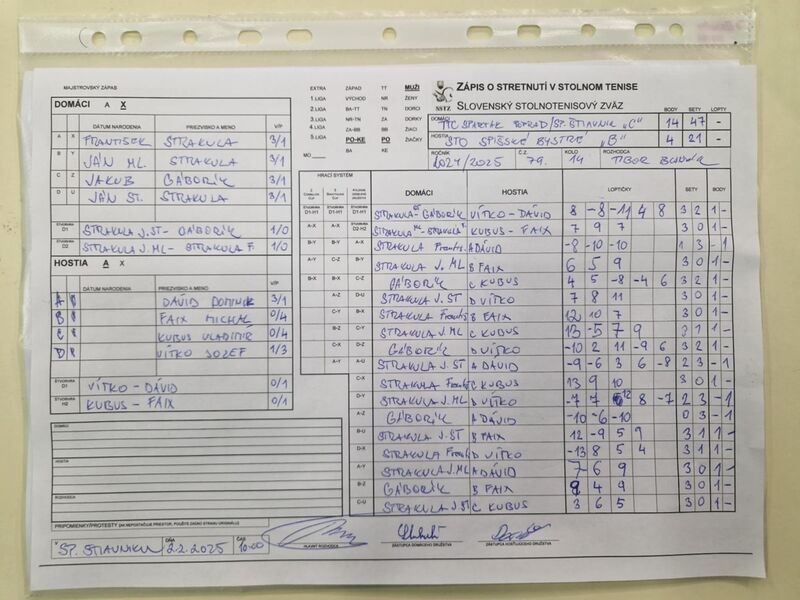 MAJSTROVSKÝ ZÁPAS
DOMÁCI A X
DÁTUM NARODENIA PRIEZVISKO A MENO V/P
A X FRANTIŠEK STRAKULA 3/1
B Y JÁN ML. STRAKULA 3/1
C Z JAKUB GÁBORÍK 3/1
D U JÁN ST. STRAKULA 3/1
ŠTVORHRA D1 STRAKULA J.ST - GÁBORÍK 1/0
ŠTVORHRA D2 STRAKULA J.ML - STRAKULA F 1/0
HOSTIA A X
DÁTUM NARODENIA PRIEZVISKO A MENO V/P
A DÁVID DOMINIK 3/1
B FAIX MICHAL 0/4
C KUBUS VLADIMÍR 0/4
D VÍTKO JOZEF 1/3
ŠTVORHRA D1 VÍTKO - DÁVID 0/1
ŠTVORHRA H2 KUBUS - FAIX 0/1
DOMÁCI
HOSTIA
ROZHODCA
PRIPOMIENKY/PROTESTY (AK NEPOSTAČUJE PRIESTOR, POUŽITE ZADNÚ STRANU ORIGINÁLU)
V SP. ŠTIAVNIKU DŇA 2.2.2025 ČAS 10:00
HLAVNÝ ROZHODCA
ZÁSTUPCA DOMÁCEHO DRUŽSTVA
ZÁSTUPCA HOSŤUJÚCEHO DRUŽSTVA
EXTRA ZÁPAD TT MUŽI
1.LIGA VÝCHOD NR ŽENY
2.LIGA BA-TT TN DORCI
3.LIGA NR-TN ZA DORKY
4.LIGA ZA-BB BB ŽIACI
5.LIGA PO-KE PO ŽIAČKY
MO BA KE
SSTZ
ZÁPIS O STRETNUTÍ V STOLNOM TENISE
SLOVENSKÝ STOLNOTENISOVÝ ZVÄZ
BODY SETY LOPTY
DOMÁCI TTC SPARTAK POPRAD/SP. ŠTIAVNIK "C" 14 47 -
HOSTIA STO SPIŠSKÉ BYSTRÉ "B" 4 21 -
ROČNÍK 2024/2025 Č.Z. 79. KOLO 14 ROZHODCA TIBOR
HRACÍ SYSTÉM
DOMÁCI HOSTIA LOPTIČKY SETY BODY
D1-H1 D1-H1 D1-H1 STRAKULA ST - GÁBORÍK VÍTKO - DÁVID 8 -8 -11 4 8 3 2 1 -
A-X A-X D2-H2 STRAKULA ML - STRAKULA F KUBUS - FAIX 7 9 7 3 0 1 -
B-Y B-Y A-X STRAKULA Františ. A DÁVID -8 -10 -10 1 3 - 1
A-Y C-Z B-Y STRAKULA J. ML B FAIX 6 5 9 3 0 1 -
B-X B-X C-Z GÁBORÍK C KUBUS 4 5 -8 -4 6 3 2 1 -
A-Z D-U STRAKULA J. ST D VÍTKO 7 8 11 3 0 1 -
C-Y B-X STRAKULA Františ B FAIX 12 10 7 3 0 1 -
B-Z C-Y STRAKULA J.ML C KUBUS 13 -5 7 9 3 1 1 -
C-X D-Z GÁBORÍK D VÍTKO -10 2 11 -9 6 3 2 1 -
A-Y A-U STRAKULA J. ST A DÁVID -9 -6 3 6 -8 2 3 - 1
C-X STRAKULA Františ C KUBUS 13 9 10 3 0 1 -
D-Y STRAKULA J. ML D VÍTKO -7 7 12 8 -7 2 3 - 1
A-Z GÁBORÍK A DÁVID -10 -6 -10 0 3 - 1
B-U STRAKULA J. ST B FAIX 12 -9 5 9 3 1 1 -
D-X STRAKULA Františ D VÍTKO -13 8 5 4 3 1 1 -
A-Y STRAKULA J.ML A DÁVID 7 6 9 3 0 1 -
B-Z GÁBORÍK B FAIX 4 9 3 0 1 -
C-U STRAKULA J.ST C KUBUS 3 6 5 3 0 1 -